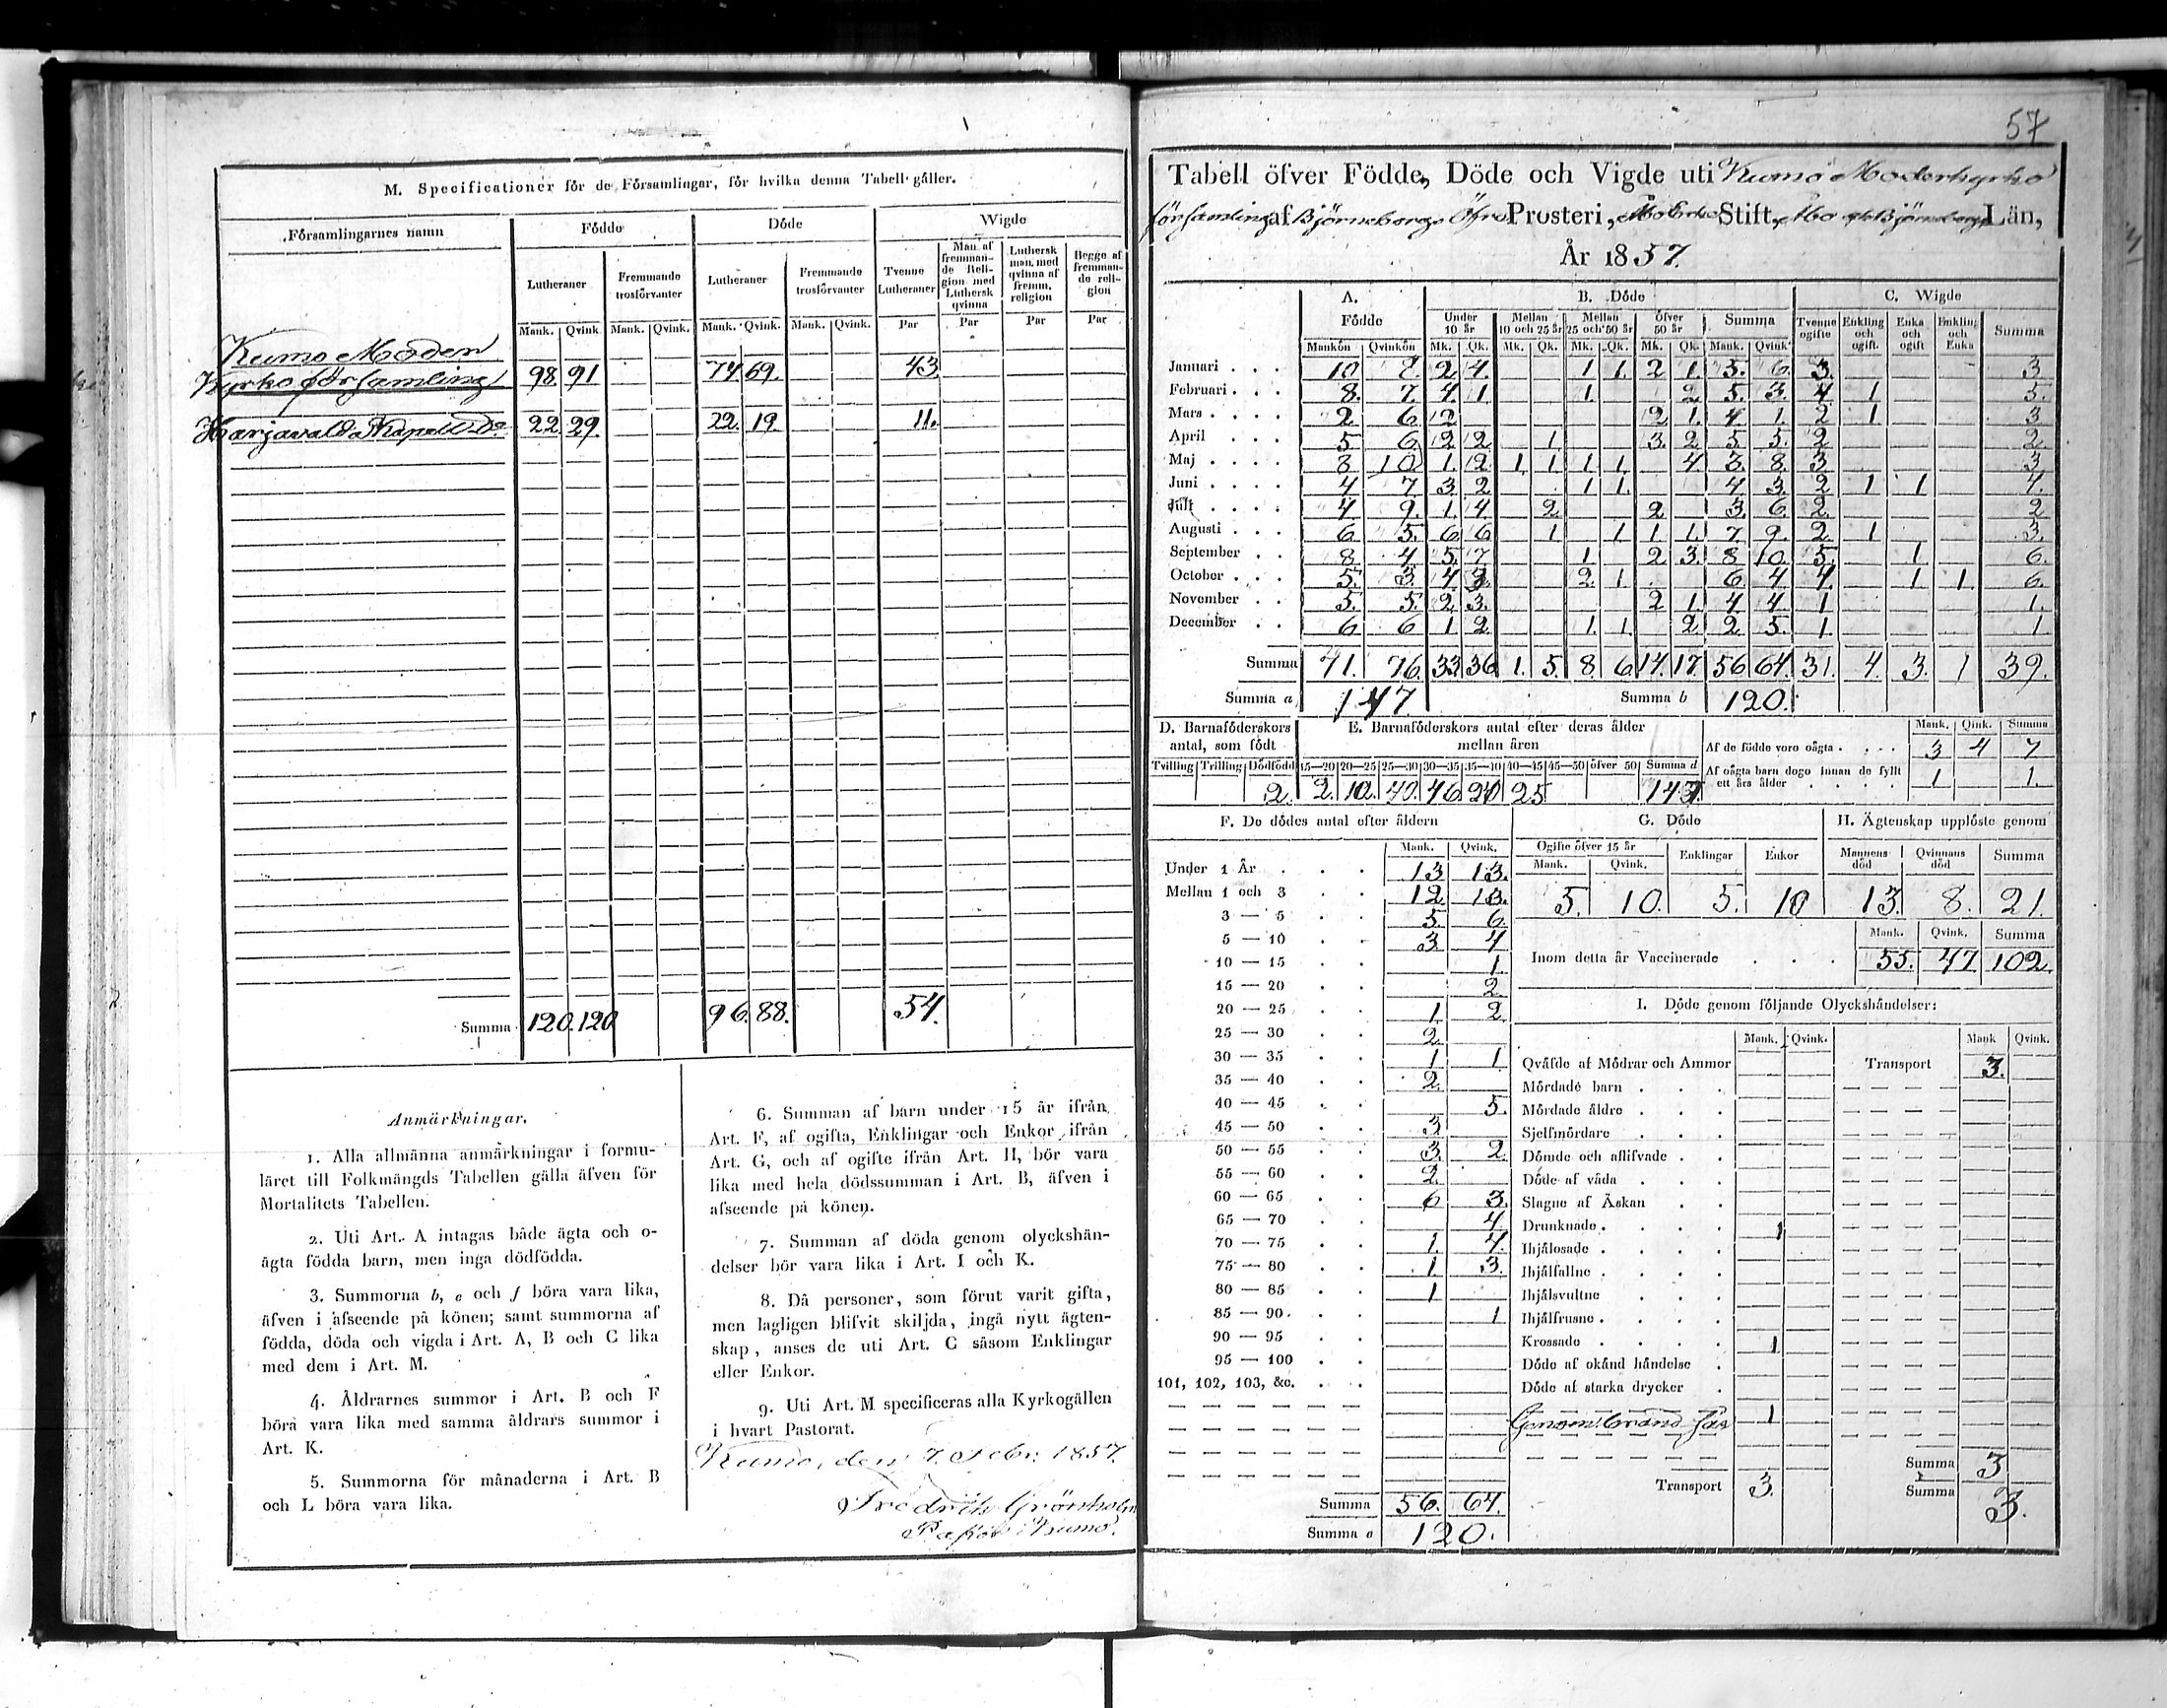 M. Specificationer för de Församlingar, för hvilka denna Tabell gäller.
Församlingarnes namn Födde Döde Wigde
Lutheraner Fremmande trosförvanter Lutheraner Fremmande trosförvanter Tvenne Lutheraner Man af fremmande Religion med Luthersk qvinna Luthersk man med qvinna af fremm. religion Begge af fremmande religion
Mank. Qvink. Mank. Qvink. Mank. Qvink. Mank. Qvink. Par Par Par Par
Kumo Moder
Kyrko församling 98 91 74 69. 43
Harjavalda Kapell Do 22 29. 22. 19. 11.
Summa 120. 120 96. 88. 54.
Anmärkningar.
1. Alla allmänna anmärkningar i formu-
läret till Folkmängds Tabellen gälla äfven för
Mortalitets Tabellen.
2. Uti Art. A intagas både ägta och o-
ägta födda barn, men inga dödfödda.
3. Summorna b, e och f böra vara lika,
äfven i afseende på könen; samt summorna af
födda, döda och vigda i Art. A, B och C lika
med dem i Art. M.
4. Åldrarnes summor i Art. B och F
böra vara lika med samma åldrars summor i
Art. K.
5. Summorna för månaderna i Art. B
och L böra vara lika.
6. Summan af barn under 15 år ifrån
Art. F, af ogifta, Enklingar och Enkor ifrån
Art. G, och af ogifte ifrån Art. H, bör vara
lika med hela dödssumman i Art. B, äfven i
afseende på könen.
7. Summan af döda genom olyckshän-
delser bör vara lika i Art. I och K.
8. Då personer, som förut varit gifta,
men lagligen blifvit skiljda, ingå nytt ägten-
skap, anses de uti Art. C såsom Enklingar
eller Enkor.
9. Uti Art. M specificeras alla Kyrkogällen
i hvart Pastorat.
Kumo, den 7. Febr. 1857.
Fredrik Grönholm
i Kumo.
57
Tabell öfver Födde, Döde och Vigde uti Kumo Moderkyrko
församling af Björneborgs Öfre Prosteri, Åbo Erke Stift, Åbo och Björneborgs Län,
År 1857.
A. Födde B. Döde C. Wigde
Under 10 år Mellan 10 och 25 år Mellan 25 och 50 år Öfver 50 år Summa Tvenne ogifte Enkling och ogift. Enka och ogift Enkling och Enka Summa
Mankön Qvinkön Mk. Qk. Mk. Qk. Mk. Qk. Mk. Qk. Mank. Qvink.
Januari 10 8. 2 4. 1 1. 2 1. 5. 6. 3. 3
Februari 8. 7. 4. 1 1. 2 5. 3. 4 1 5.
Mars 2 6. 2 2 1. 4. 1. 2 1 3
April 5 6. 2 2 1 3. 2 5 5. 2 2.
Maj 8 10 1. 2 1. 1. 1 1. 4 3. 8. 3 3
Juni 4 7 3 2 1 1. 4 3. 2 1 1 4.
Juli 4 9. 1. 4 2 2 3. 6. 2 2
Augusti 6 5. 6 6 1 1 1 1. 7 9. 2 1 3.
September 8 4 5. 7 1 2 3. 8 10. 5. 1 6.
October 5. 3. 4 3. 2. 1. 6. 4 4. 1 1. 6.
November 5. 5. 2 3. 2 1. 4 4 1 1.
December 6 6 1. 2 1. 1. 2 2 5. 1. 1
Summa 71. 76. 33 36 1. 5. 8 6 14. 17. 56 64. 31. 4. 3. 1 39.
Summa a 147. Summa b 120.
D. Barnaföderskors antal, som födt E. Barnaföderskors antal efter deras ålder mellan åren Mank. Qink. Summa
Af de födde voro oägta 3 4 7
Tvilling Trilling Dödfödd 15—20 20—25 25—30 30—35 35—40 40—45 45—50 öfver 50 Summa d
Af oägta barn dogo innan de fyllt ett års ålder 1 1.
2. 2. 10. 40. 46. 20 25 147
F. De dödes antal efter åldern
Mank. Qvink.
Under 1 År 13 13.
Mellan 1 och 3 12 13.
3 — 5 5. 6.
5 — 10 3. 4
10 — 15 1.
15 — 20 2
20 — 25 1 2
25 — 30 2
30 — 35 1 1
35 — 40 2
40 — 45 5.
45 — 50 3
50 — 55 3. 2
55 — 60 2.
60 — 65 6 3.
65 — 70 4
70 — 75 1. 4.
75 — 80 1. 3.
80 — 85 1
85 — 90 1
90 — 95
95 — 100
101, 102, 103, &c.
Summa 56. 64.
Summa e 120.
G. Döde
Ogifte öfver 15 år Enklingar Enkor
Mank. Qvink.
5. 10. 5. 10
H. Ägtenskap upplöste genom
Mannens död Qvinnans död Summa
13. 8. 21.
Mank. Qvink. Summa
Inom detta år Vaccinerade 55. 47 102.
I. Döde genom följande Olyckshändelser:
Mank. Qvink. Mank Qvink.
Qväfde af Mödrar och Ammor Transport 3.
Mördade barn
Mördade äldre
Sjelfmördare
Dömde och aflifvade
Döde af våda
Slagne af Åskan
Drunknade 1
Ihjälosade
Ihjälfallne
Ihjälsvultne
Ihjälfrusne
Krossade 1
Döde af okänd händelse
Döde af starka drycker
Genom bränd 1
Summa 3
Transport 3. Summa 3.